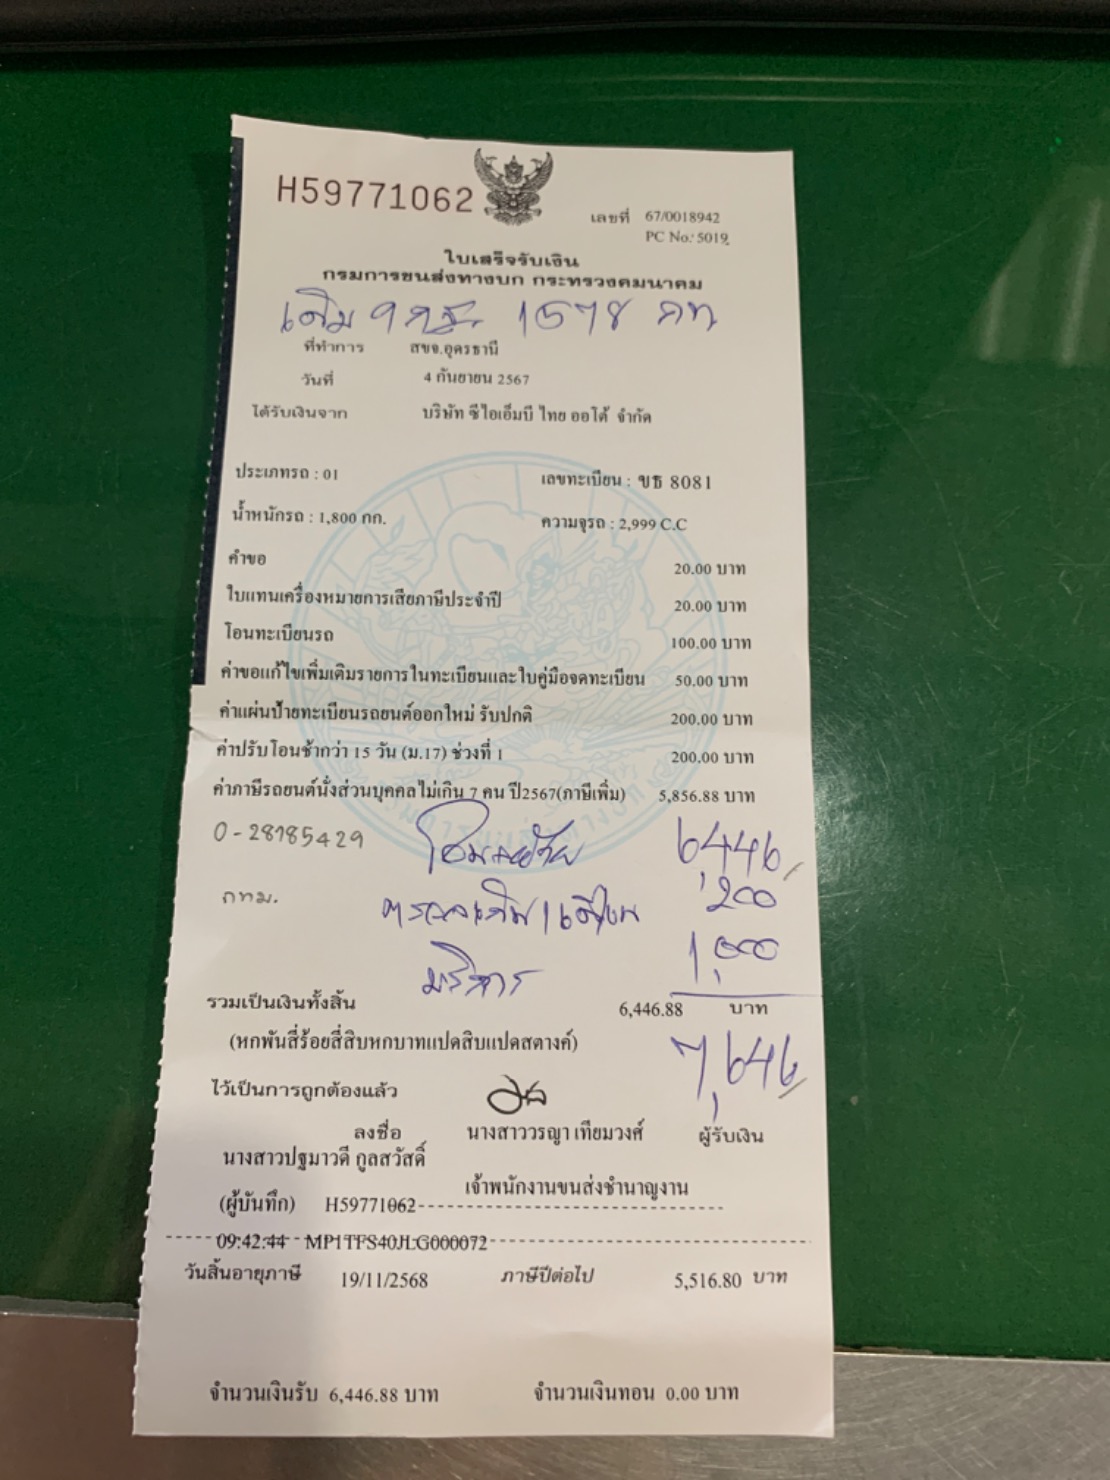 H59771062
เลขที่ 67/0018942
PC No.: 5019
ใบเสร็จรับเงิน
กรมการขนส่งทางบก กระทรวงคมนาคม
เดิม 9 กฐ 1578 กท
ที่ทำการ สขจ.อุดรธานี
วันที่ 4 กันยายน 2567
ได้รับเงินจาก บริษัท ซีไอเอ็มบี ไทย ออโต้ จำกัด
ประเภทรถ : 01 เลขทะเบียน : ขธ 8081
น้ำหนักรถ : 1,800 กก. ความจุรถ : 2,999 C.C
คำขอ 20.00 บาท
ใบแทนเครื่องหมายการเสียภาษีประจำปี 20.00 บาท
โอนทะเบียนรถ 100.00 บาท
ค่าขอแก้ไขเพิ่มเติมรายการในทะเบียนและใบคู่มือจดทะเบียน 50.00 บาท
ค่าแผ่นป้ายทะเบียนรถยนต์ออกใหม่ รับปกติ 200.00 บาท
ค่าปรับโอนช้ากว่า 15 วัน (ม.17) ช่วงที่ 1 200.00 บาท
ค่าภาษีรถยนต์นั่งส่วนบุคคลไม่เกิน 7 คน ปี2567(ภาษีเพิ่ม) 5,856.88 บาท
0-28185429 6,446
กทม. 200
บริการ 1,000
รวมเป็นเงินทั้งสิ้น 6,446.88 บาท
(หกพันสี่ร้อยสี่สิบหกบาทแปดสิบแปดสตางค์) 7,646
ไว้เป็นการถูกต้องแล้ว
ลงชื่อ นางสาววรญา เทียมวงศ์ ผู้รับเงิน
นางสาวปฐมาวดี กูลสวัสดิ์
เจ้าพนักงานขนส่งชำนาญงาน
(ผู้บันทึก) H59771062
09:42:44 MP1TFS40JLG000072
วันสิ้นอายุภาษี 19/11/2568 ภาษีปีต่อไป 5,516.80 บาท
จำนวนเงินรับ 6,446.88 บาท จำนวนเงินทอน 0.00 บาท